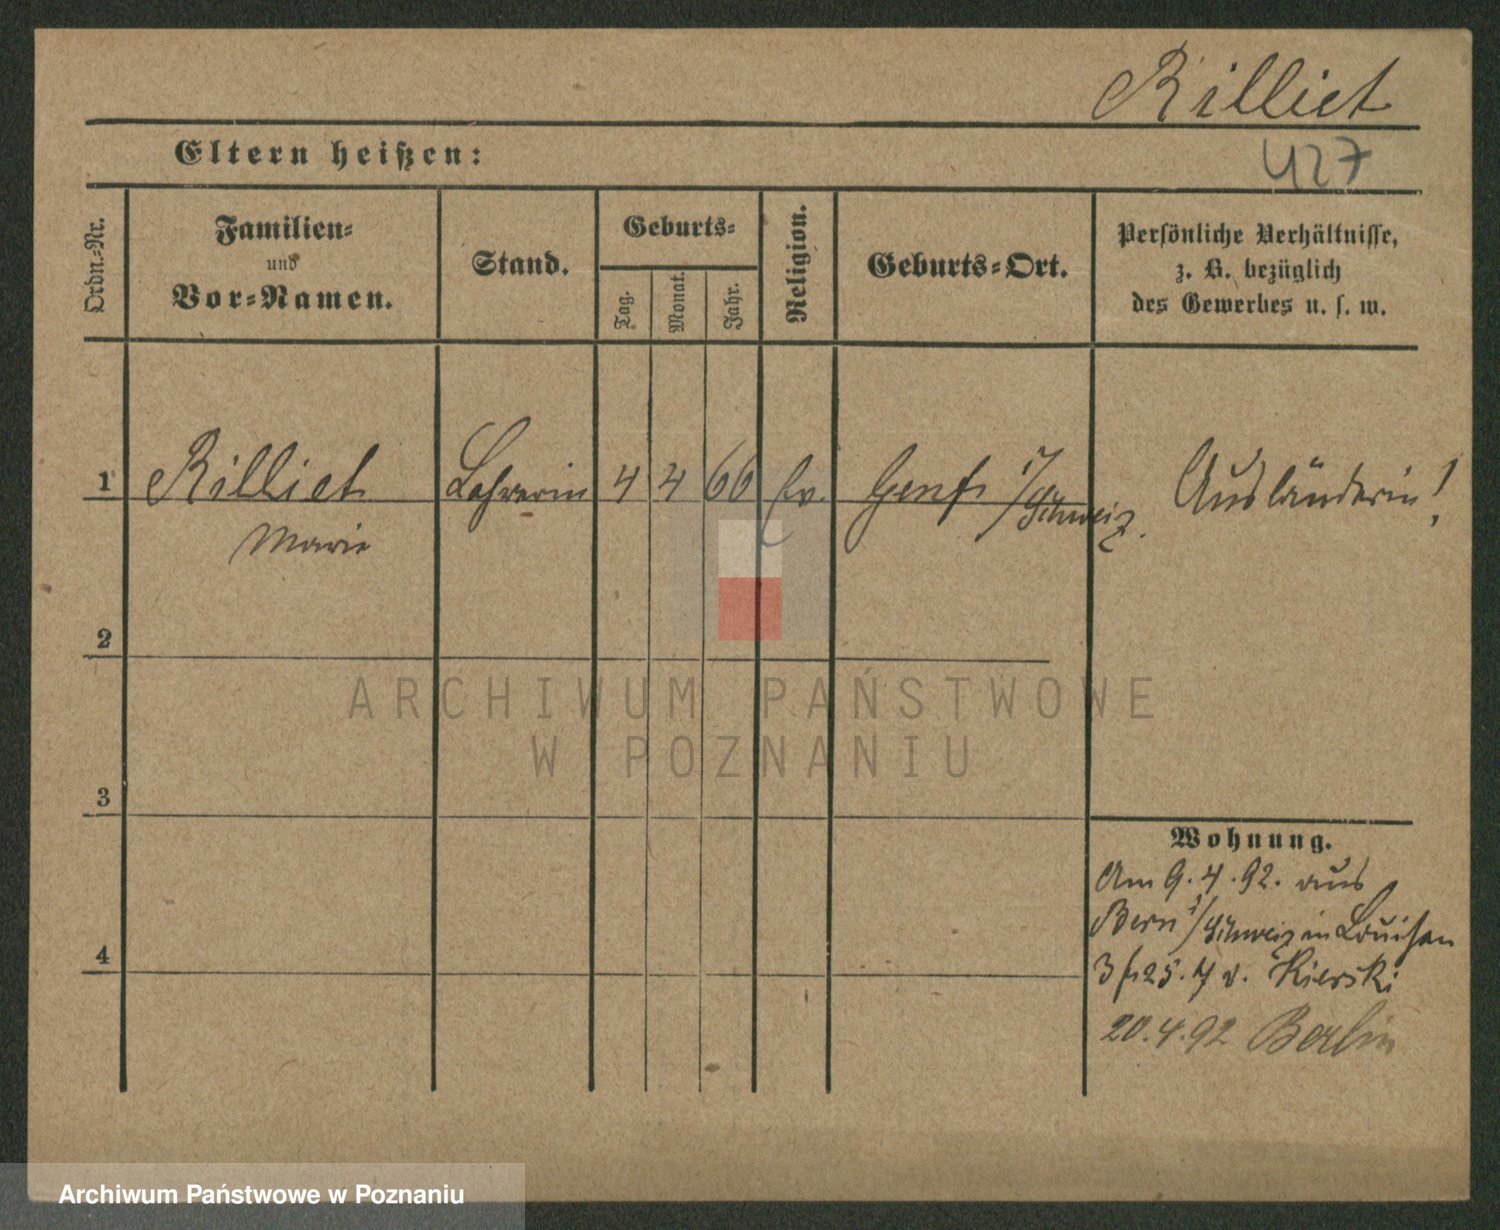 Rilliet
Eltern heißen:
427
Ordn.-Nr.
Familien-
und
Vor-Namen.
Stand.
Geburts-
Tag.
Monat.
Jahr.
Religion.
Geburts-Ort.
Persönliche Verhältnisse,
z. B. bezüglich
des Gewerbes u. s. w.
1 Rilliet Lehrerin 4 4 66 ev. Genf i/ Ausländerin!
Marie Schweiz.
2
ARCHIWUM PAŃSTWOWE
W POZNANIU
3
Wohnung.
Am 9.4.92. aus
Bern i/Schweiz in Louisen
3 25.4 v. Kierski
4
20.4.92 Berlin
Archiwum Państwowe w Poznaniu